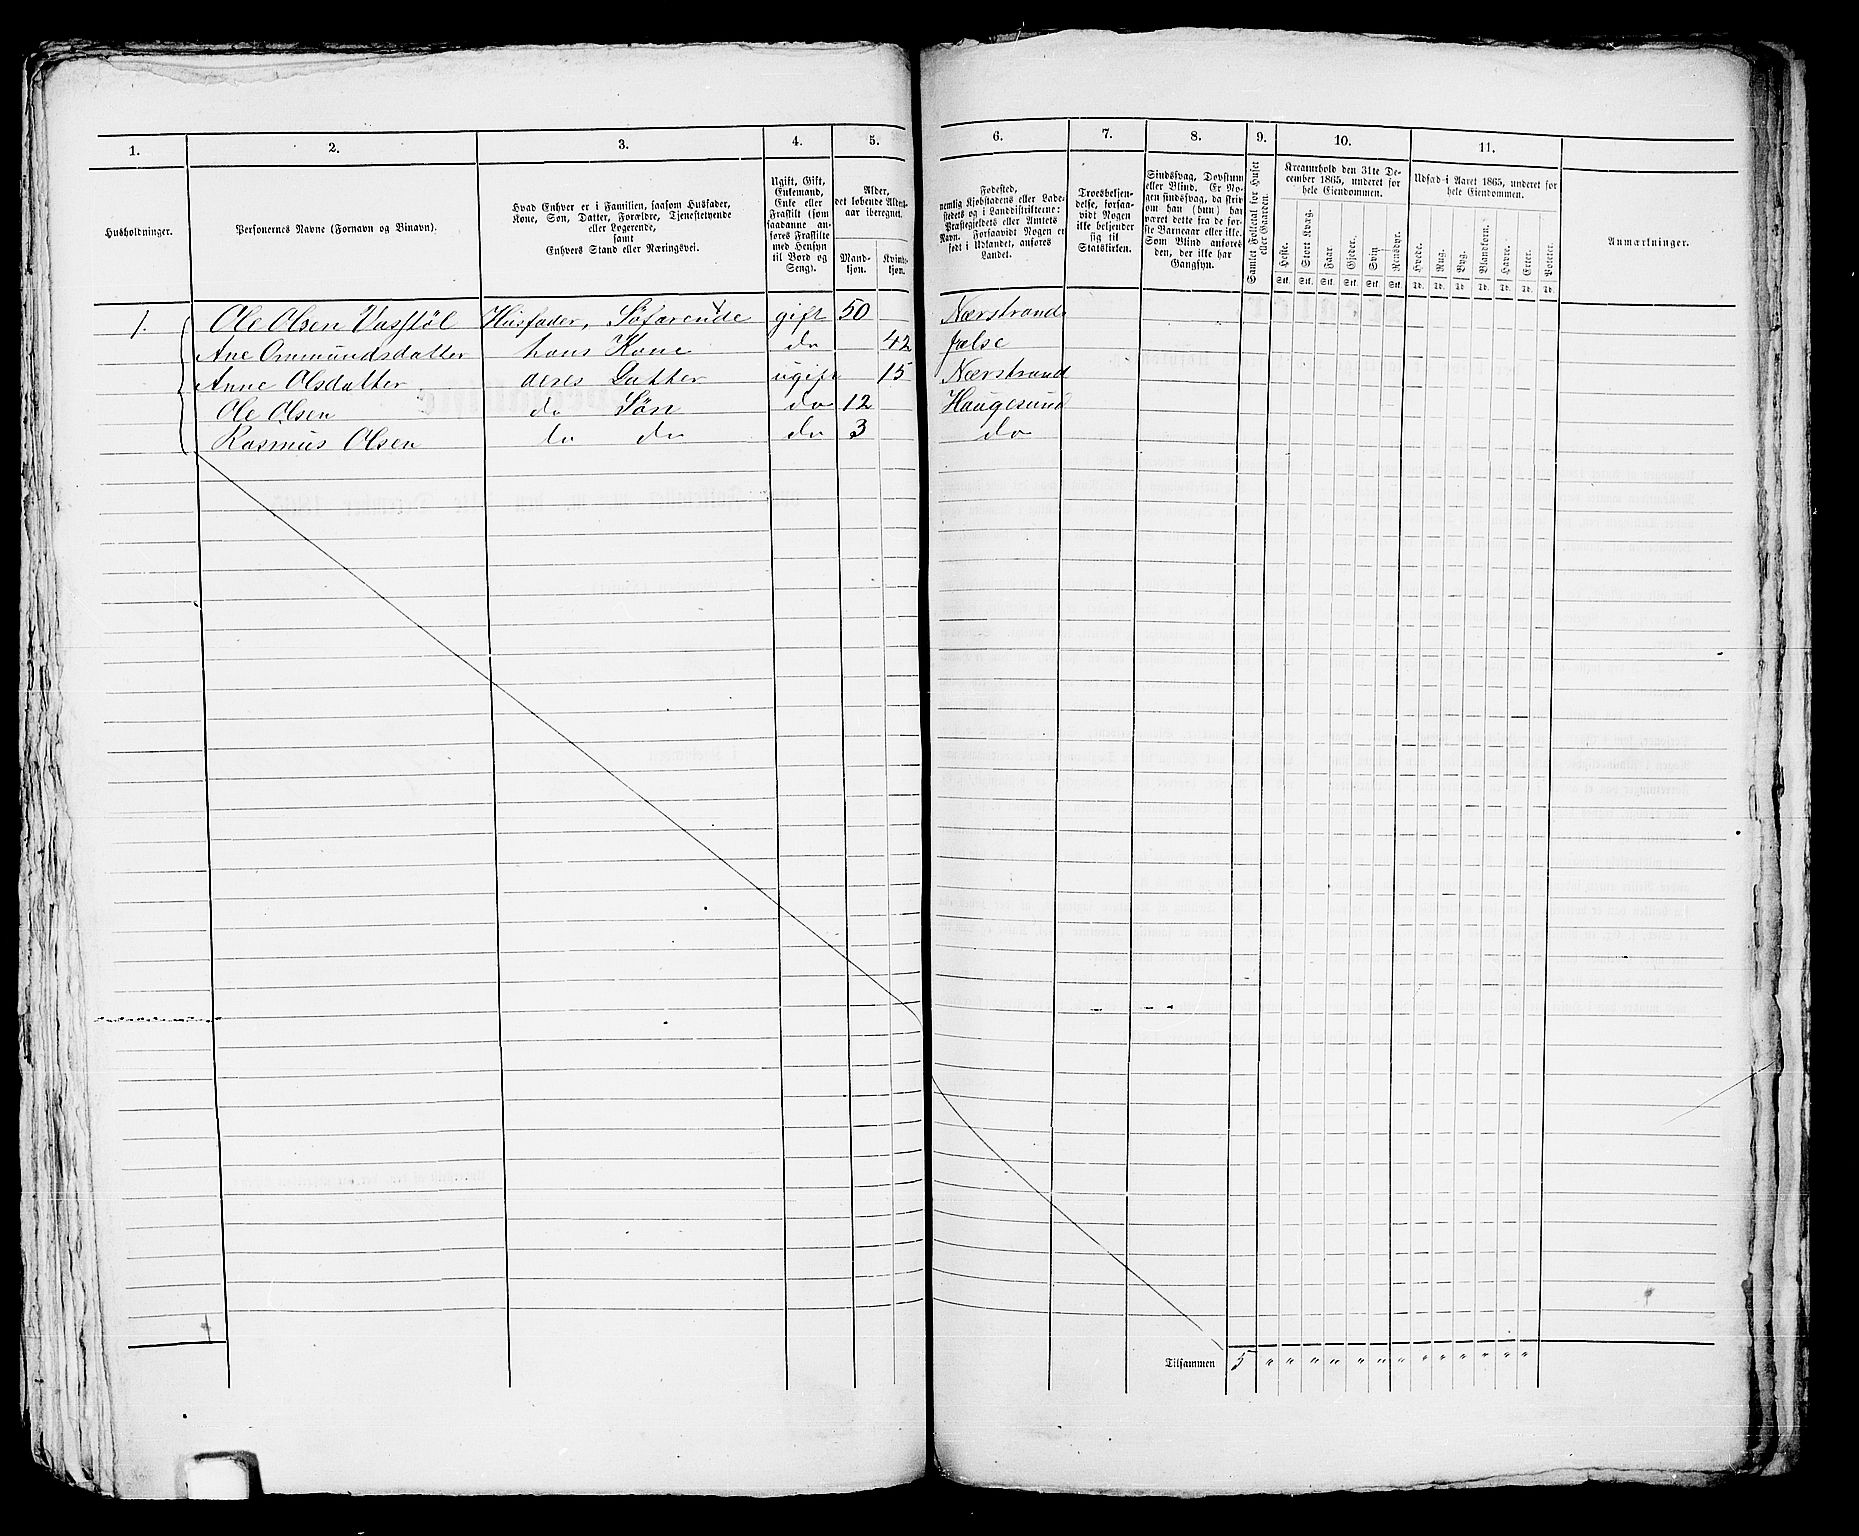 1. 2. 3. 4. 5. 6. 7. 8. 9. 10. 11.
Husholdninger.
Personernes Navne (Fornavn og Binavn).
Hvad Enhver er i Familien, saasom Husfader,
Kone, Søn, Datter, Forældre, Tjenestetyende
eller Logerende,
samt
Enhvers Stand eller Næringsvei.
Ugift, Gift,
Enkemand,
Enke eller
Fraskilt (som
saadanne an-
føres Fraskilte
med Hensyn
til Bord og
Seng).
Alder,
det løbende Alders-
aar iberegnet.
Mand-
kjøn.
Kvinde-
kjøn.
Fødested,
nemlig Kjøbstadens eller Lade-
stedets og i Landdistrikterne:
Præstegjeldets eller Amtets
Navn. Forsaavidt Nogen er
født i Udlandet, anføres
Landet.
Troesbekjen-
delse, forsaa-
vidt Nogen
ikke bekjender
sig til
Statskirken.
Sindssvag, Døvstum
eller Blind. Er No-
gen sindssvag, da skriv
om han (hun) har
været dette fra de før-
ste Barneaar eller ikke.
Som Blind anføres
den, der ikke har
Gangsyn.
Samlet Folketal for Huset
eller Gaarden.
Kreaturhold den 31te De-
cember 1865, underet for
hele Eiendommen.
Heste. Stort Kvæg. Faar. Gjeder. Sviin Rensdyr.
Stk. Stk. Stk. Stk. Stk. Stk.
Udsæd i Aaret 1865, underet for
hele Eiendommen.
Hvede. Rug. Byg. Blandkorn. Havre. Erter. Poteter.
Td. Td. Td. Td. Td. Td. Td.
Anmærkninger.
1. Ole Olsen Vasstøl Husfader, Søfarende gift 50 Nærstrand
Ane Ommundsdatter hans Kone do 42 Jælse
Anne Olsdatter deres Datter ugift 15 Nærstrand
Ole Olsen do Søn do 12 Haugesund
Rasmus Olsen do do do 3 do
Tilsammen 5 " " " " " " " " " " " " "